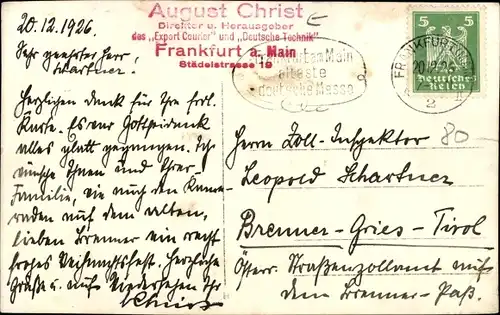 20.12.1926.
August Christ
Direktor u. Herausgeber
des „Export Courier" und „Deutsche Technik"
Frankfurt a. Main
Städelstrasse 19
Frankfurt am Main
älteste
deutsche Messe
FRANKFURT
20.12.26
2
5 5
Deutsches
Reich
Sehr geehrter Herr,
Schartner.
Herzlichen Dank für Ihre frdl.
Karte. Es war Gottseidank
alles glatt gegangen. Ich
wünsche Ihnen und Ihrer
Familie, wie auch den Kame-
raden auf dem alten,
lieben Brenner ein recht
frohes Weihnachtsfest. Herzliche
Grüße u. auf Wiedersehen Ihr
Christ
80-
Herrn Zoll-Inspektor
Leopold Schartner
Brenner-Gries-Tirol
Österr. Straßenzollamt auf
dem Brenner-Paß.